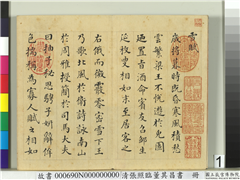 雪賦
歲將暮時既昏寒風積愁
雲繁梁王不悅遊於兔園
迺置旨酒命賓友召鄒生
延枚叟相如末至居客之
右俄而微霰零密雪下王
乃歌北風於衛詩詠南山
於周雅授簡於司馬大夫
曰抽子秘思騁子妍辭侔
色揣稱為寡人賦之相如
1
故書000690N000000000 清張照臨董其昌書 冊